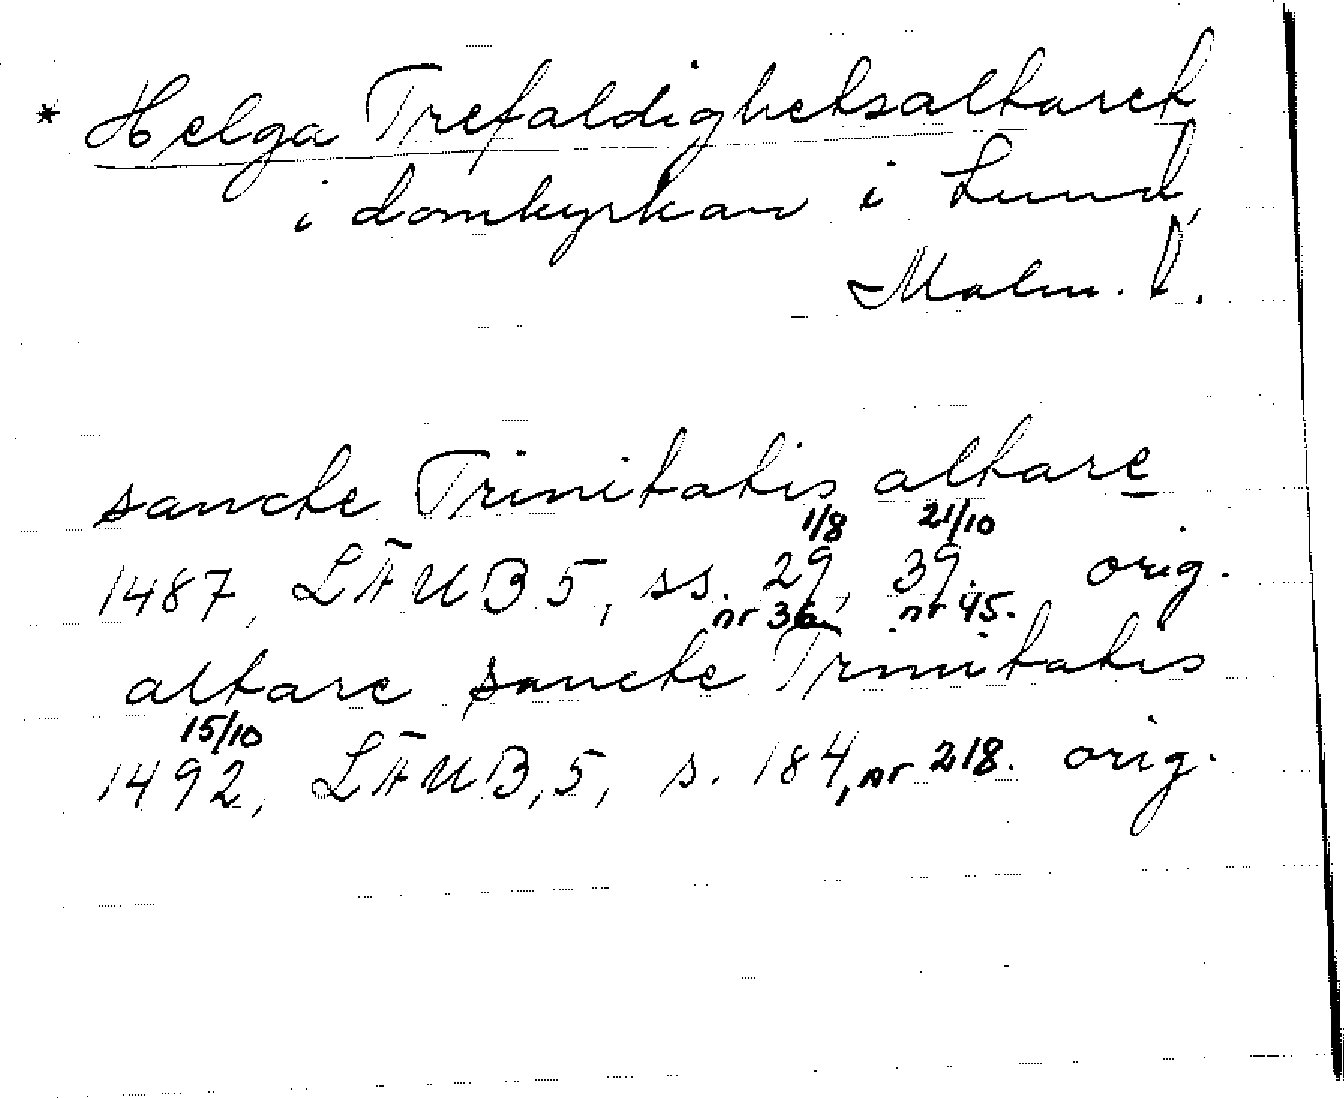 * Helga Trefaldighetsaltaret
i domkyrkan i Lund,
Malm. l.
sancte Trinitatis altare
1/8 21/10
1487, LÄUB 5, ss. 29, 39, orig.
nr 36 nr 45.
altare sancte Trinitatis
15/10
1492, LÄUB, 5, s. 184, nr 218. orig.